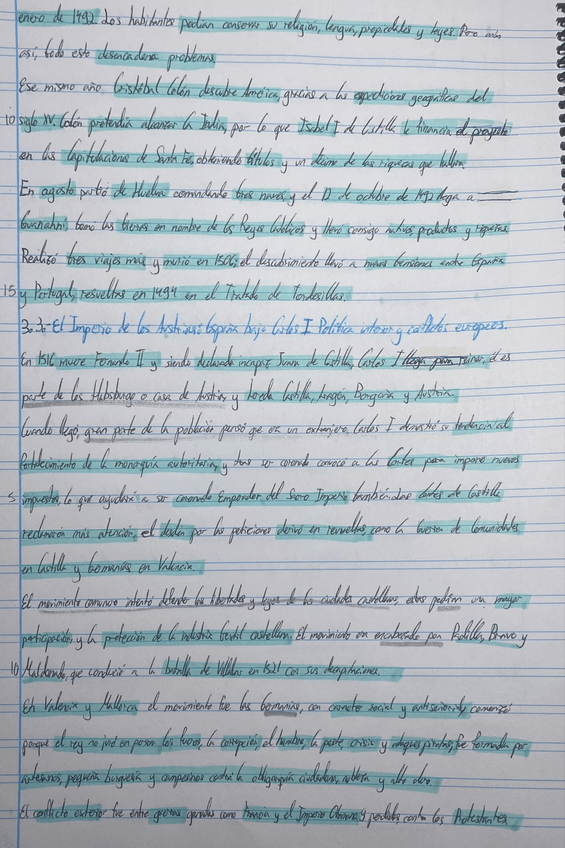 enero de 1492. Los habitantes podían conservar su religión, lengua, propiedades y leyes. Pero aún
así, todo esto desencadena problemas.
Ese mismo año, Cristóbal Colón descubre América, gracias a las expediciones geográficas del
10 siglo XV. Colón pretendía alcanzar la India, por lo que Isabel I de Castilla le financia el proyecto
en las Capitulaciones de Santa Fe, obteniendo títulos y un décimo de las riquezas que
En agosto partió de Huelva comandando tres naves, y el 12 de octubre de 1492 llega a
Guanahaní, toma las tierras en nombre de los Reyes Católicos y llevó consigo nativos, productos y
Realizó tres viajes más y murió en 1506, el descubrimiento llevó a tensiones entre España
15 y Portugal, resueltas en 1494 en el Tratado de Tordesillas.
3.3: El Imperio de los Austrias: España bajo Carlos I. Política interior y conflictos europeos.
En 1516 muere Fernando II y siendo declarada incapaz Juana de Castilla, Carlos I reinar, él es
parte de los Habsburgo o casa de Austria y hereda Castilla, Aragón, Borgoña y Austria.
Cuando llegó, gran parte de la población pensó que era un extranjero. Carlos I demostró su tendencia al
fortalecimiento de la monarquía autoritaria, y tras ser coronado convocó a las Cortes para imponer nuevos
5 impuestos, lo que ayudaría a ser coronado Emperador del Sacro Imperio de Castilla
reclamaron más atención, el desdén por las peticiones derivó en revueltas, como la Guerra de Comunidades
en Castilla y Germanías en Valencia.
El movimiento comunero intentó defender las libertades y leyes de las ciudades castellanas, estas pedían una mayor
participación, y la protección de la industria textil castellana. El movimiento era encabezado por Padilla, Bravo y
10 Maldonado, que condujo a la batalla de Villalar en 1521 con sus decapitaciones.
En Valencia y Mallorca el movimiento fue las Germanías, con carácter social y antiseñorial, comenzó
porque el rey no juró en persona los fueros, la corrupción, el hambre, la peste, crisis y ataques piratas, fue formada por
artesanos, pequeña burguesía y campesinos contra la oligarquía ciudadana, nobleza y alto clero.
El conflicto exterior fue entre guerras ganadas como Francia y el Imperio Otomano y perdidas contra los Protestantes